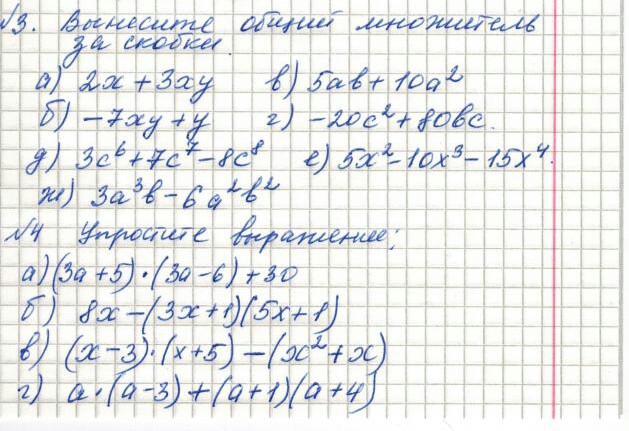 №3. Вынесите общий множитель
за скобки.
а) 2x + 3xy в) 5ab + 10a²
б) -7xy + y г) -20c² + 80bc.
д) 3c⁶ + 7c⁷ - 8c⁸ е) 5x² - 10x³ - 15x⁴.
ж) 3a³b - 6a²b²
№4 Упростите выражение:
а) (3a + 5)·(3a - 6) + 30
б) 8x - (3x + 1)(5x + 1)
в) (x - 3)·(x + 5) - (x² + x)
г) a·(a - 3) + (a + 1)(a + 4)